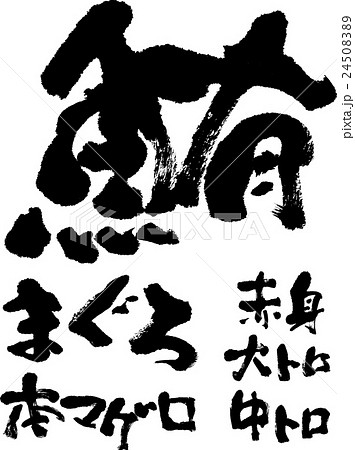 鮪
まぐろ
本マグロ
赤身
大トロ
中トロ
PIXTA
24508389